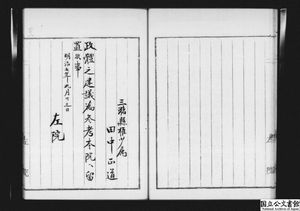 三潴縣権少属
田中正道
政體之建議為参考本院へ留
置候事
明治五年九月十三日
左院
国立公文書館
National Archives of Japan